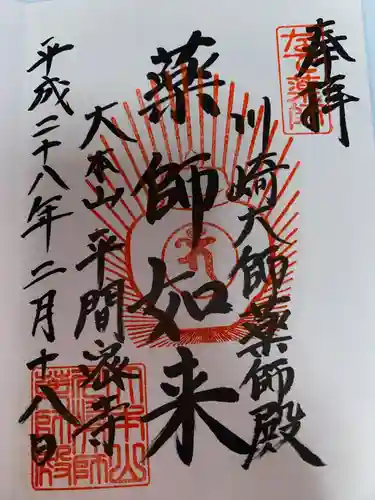 奉拝
川崎大師薬師殿
薬師如来
大本山平間寺
平成二十八年二月十八日
なで薬師